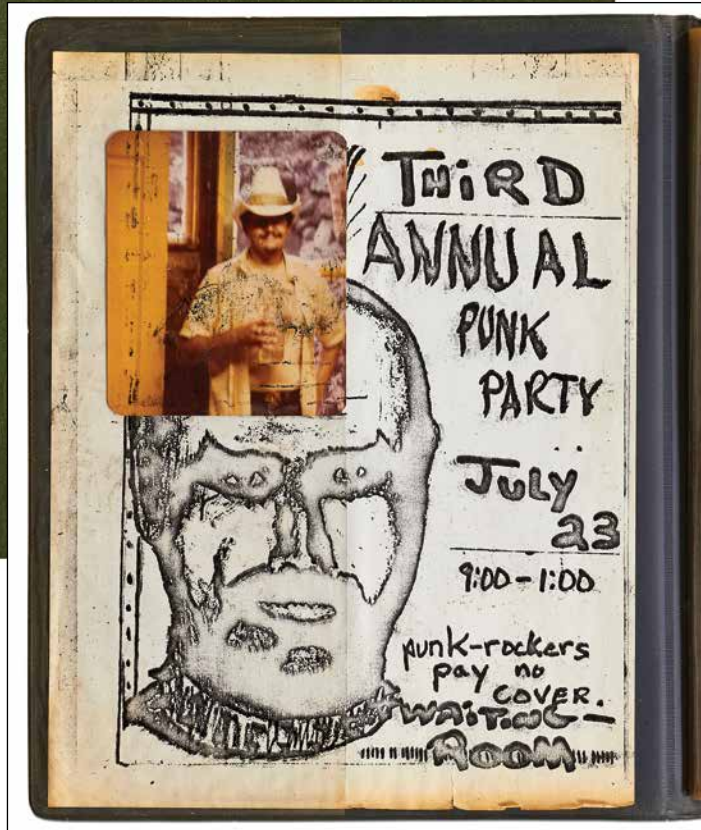 THiRD
ANNUAL
PUNK
PARTY
JULY
23
9:00-1:00
punk-rockers
pay no
COVER.
WAiTiNG-
ROOM